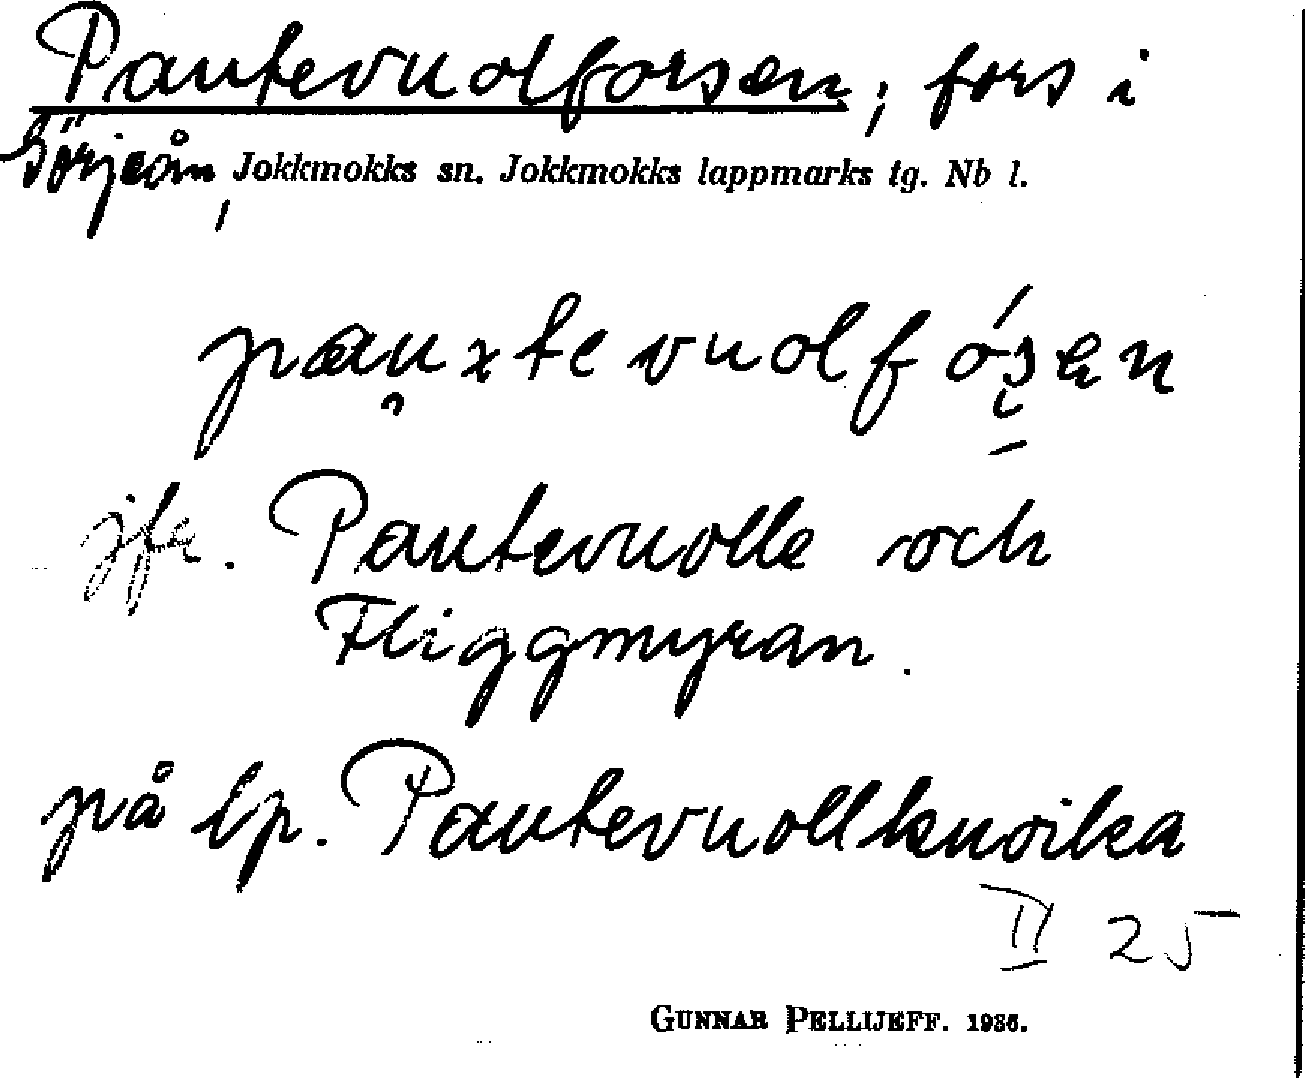 Pautevuolforsen; fors i
Görjeån, Jokkmokks sn. Jokkmokks lappmarks tg. Nb l.
jfr. Pautevuolle och
Fliggmyran.
på lp. Pautevuollkuoika
II 25
GUNNAR PELLIJEFF. 1936.